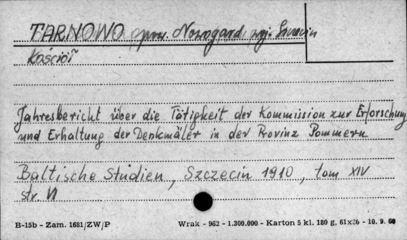 TARNOWO pow. Nowogard, woj. Szczecin
Kościół
Jahresbericht über die Tätigkeit der Kommission zur Erforschung
und Erhaltung der Denkmäler in der Provinz Pommern
Baltische Studien, Szczecin 1910, tom XIV
str. VI
B-15b - Zam. 1681/ZW/P Wrak - 962 - 1.300.000 - Karton 5 kl. 180 g. 61x86 - 10. 9. 60